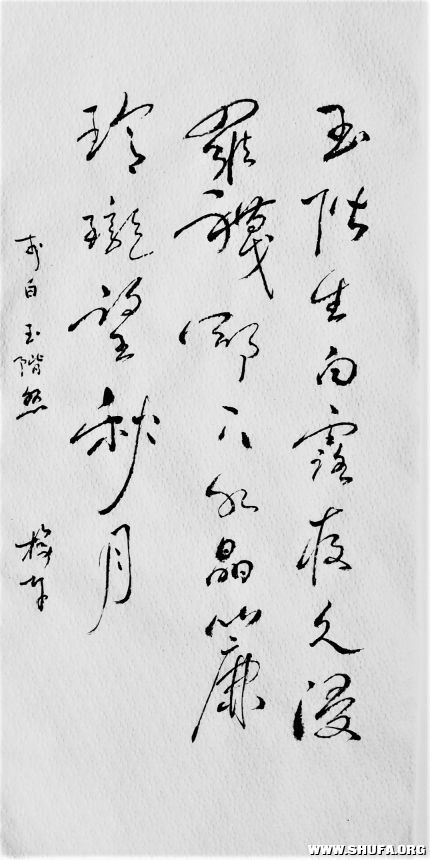 玉階生白露夜久浸
羅襪卻下水晶簾
玲瓏望秋月
李白玉階怨
WWW.SHUFA.ORG